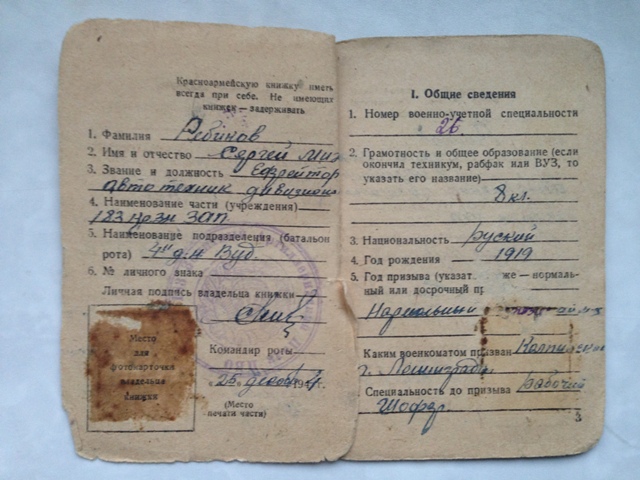 Красноармейскую книжку иметь
всегда при себе. Не имеющих
книжки — задерживать
1. Фамилия Рябинов
2. Имя и отчество Сергей Мих
3. Звание и должность Ефрейтор
автотехник дивизиона
4. Наименование части (учреждения)
183 ЗАП
5. Наименование подразделения (батальон
рота) 4й д-н
6. № личного знака
Личная подпись владельца книжки
Место
для
фотокарточки
владельца
книжки
Командир роты
„26 декабр 194 г.
(Место
печати части)
I. Общие сведения
1. Номер военно-учетной специальности
26
2. Грамотность и общее образование (если
окончил техникум, рабфак или ВУЗ, то
указать его название)
8 кл.
3. Национальность Руский
4. Год рождения 1919
5. Год призыва (указат же — нормаль-
ный или досрочный пр
Нормальный
Каким военкоматом призван Колпинским
г. Ленинграда
Специальность до призыва Рабочий
Шофер.
3